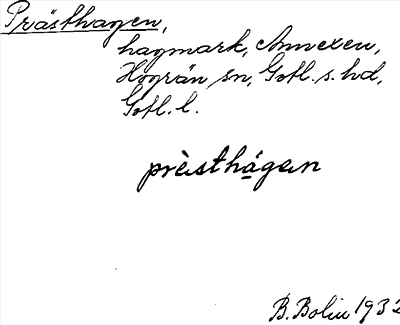 Prästhagen,
hagmark, Annexen,
Hogrän sn, Gotl. s. hd,
Gotl. l.
prèsthágen
B. Bolin 1932